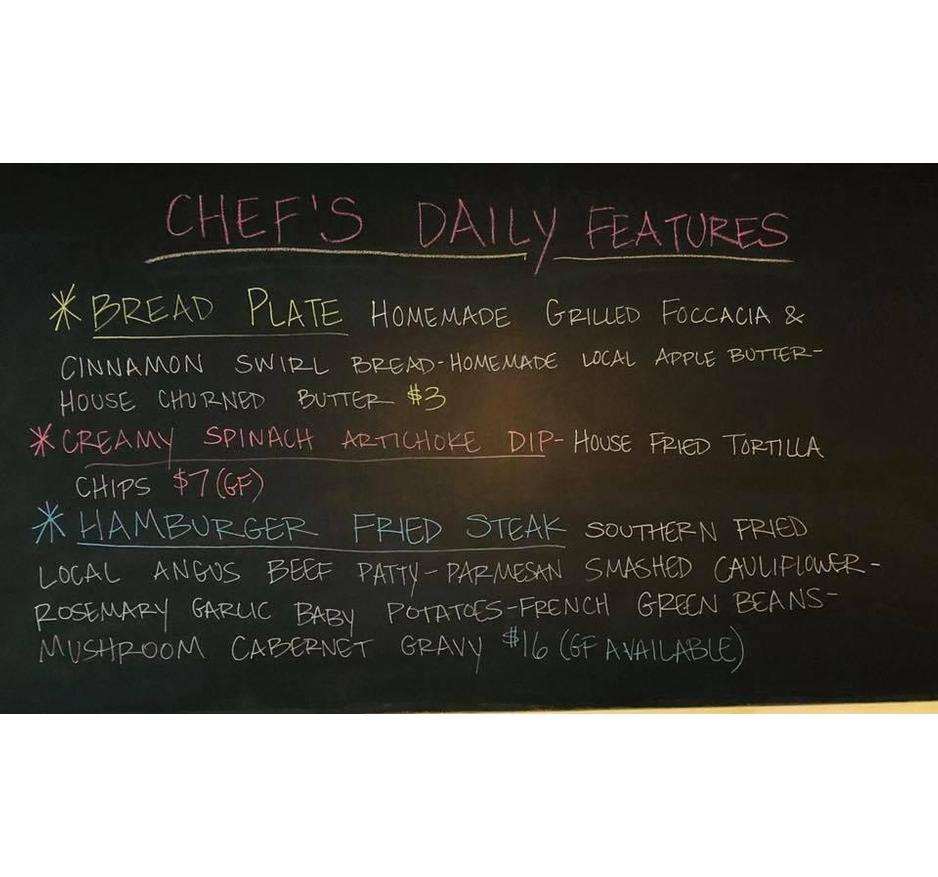 CHEF'S DAILY FEATURES
* BREAD PLATE HOMEMADE GRILLED FOCCACIA &
CINNAMON SWIRL BREAD-HOMEMADE LOCAL APPLE BUTTER-
HOUSE CHURNED BUTTER $3
* CREAMY SPINACH ARTICHOKE DIP- HOUSE FRIED TORTILLA
CHIPS $7 (GF)
* HAMBURGER FRIED STEAK SOUTHERN FRIED
LOCAL ANGUS BEEF PATTY-PARMESAN SMASHED CAULIFLOWER-
ROSEMARY GARLIC BABY POTATOES-FRENCH GREEN BEANS-
MUSHROOM CABERNET GRAVY $16 (GF AVAILABLE)